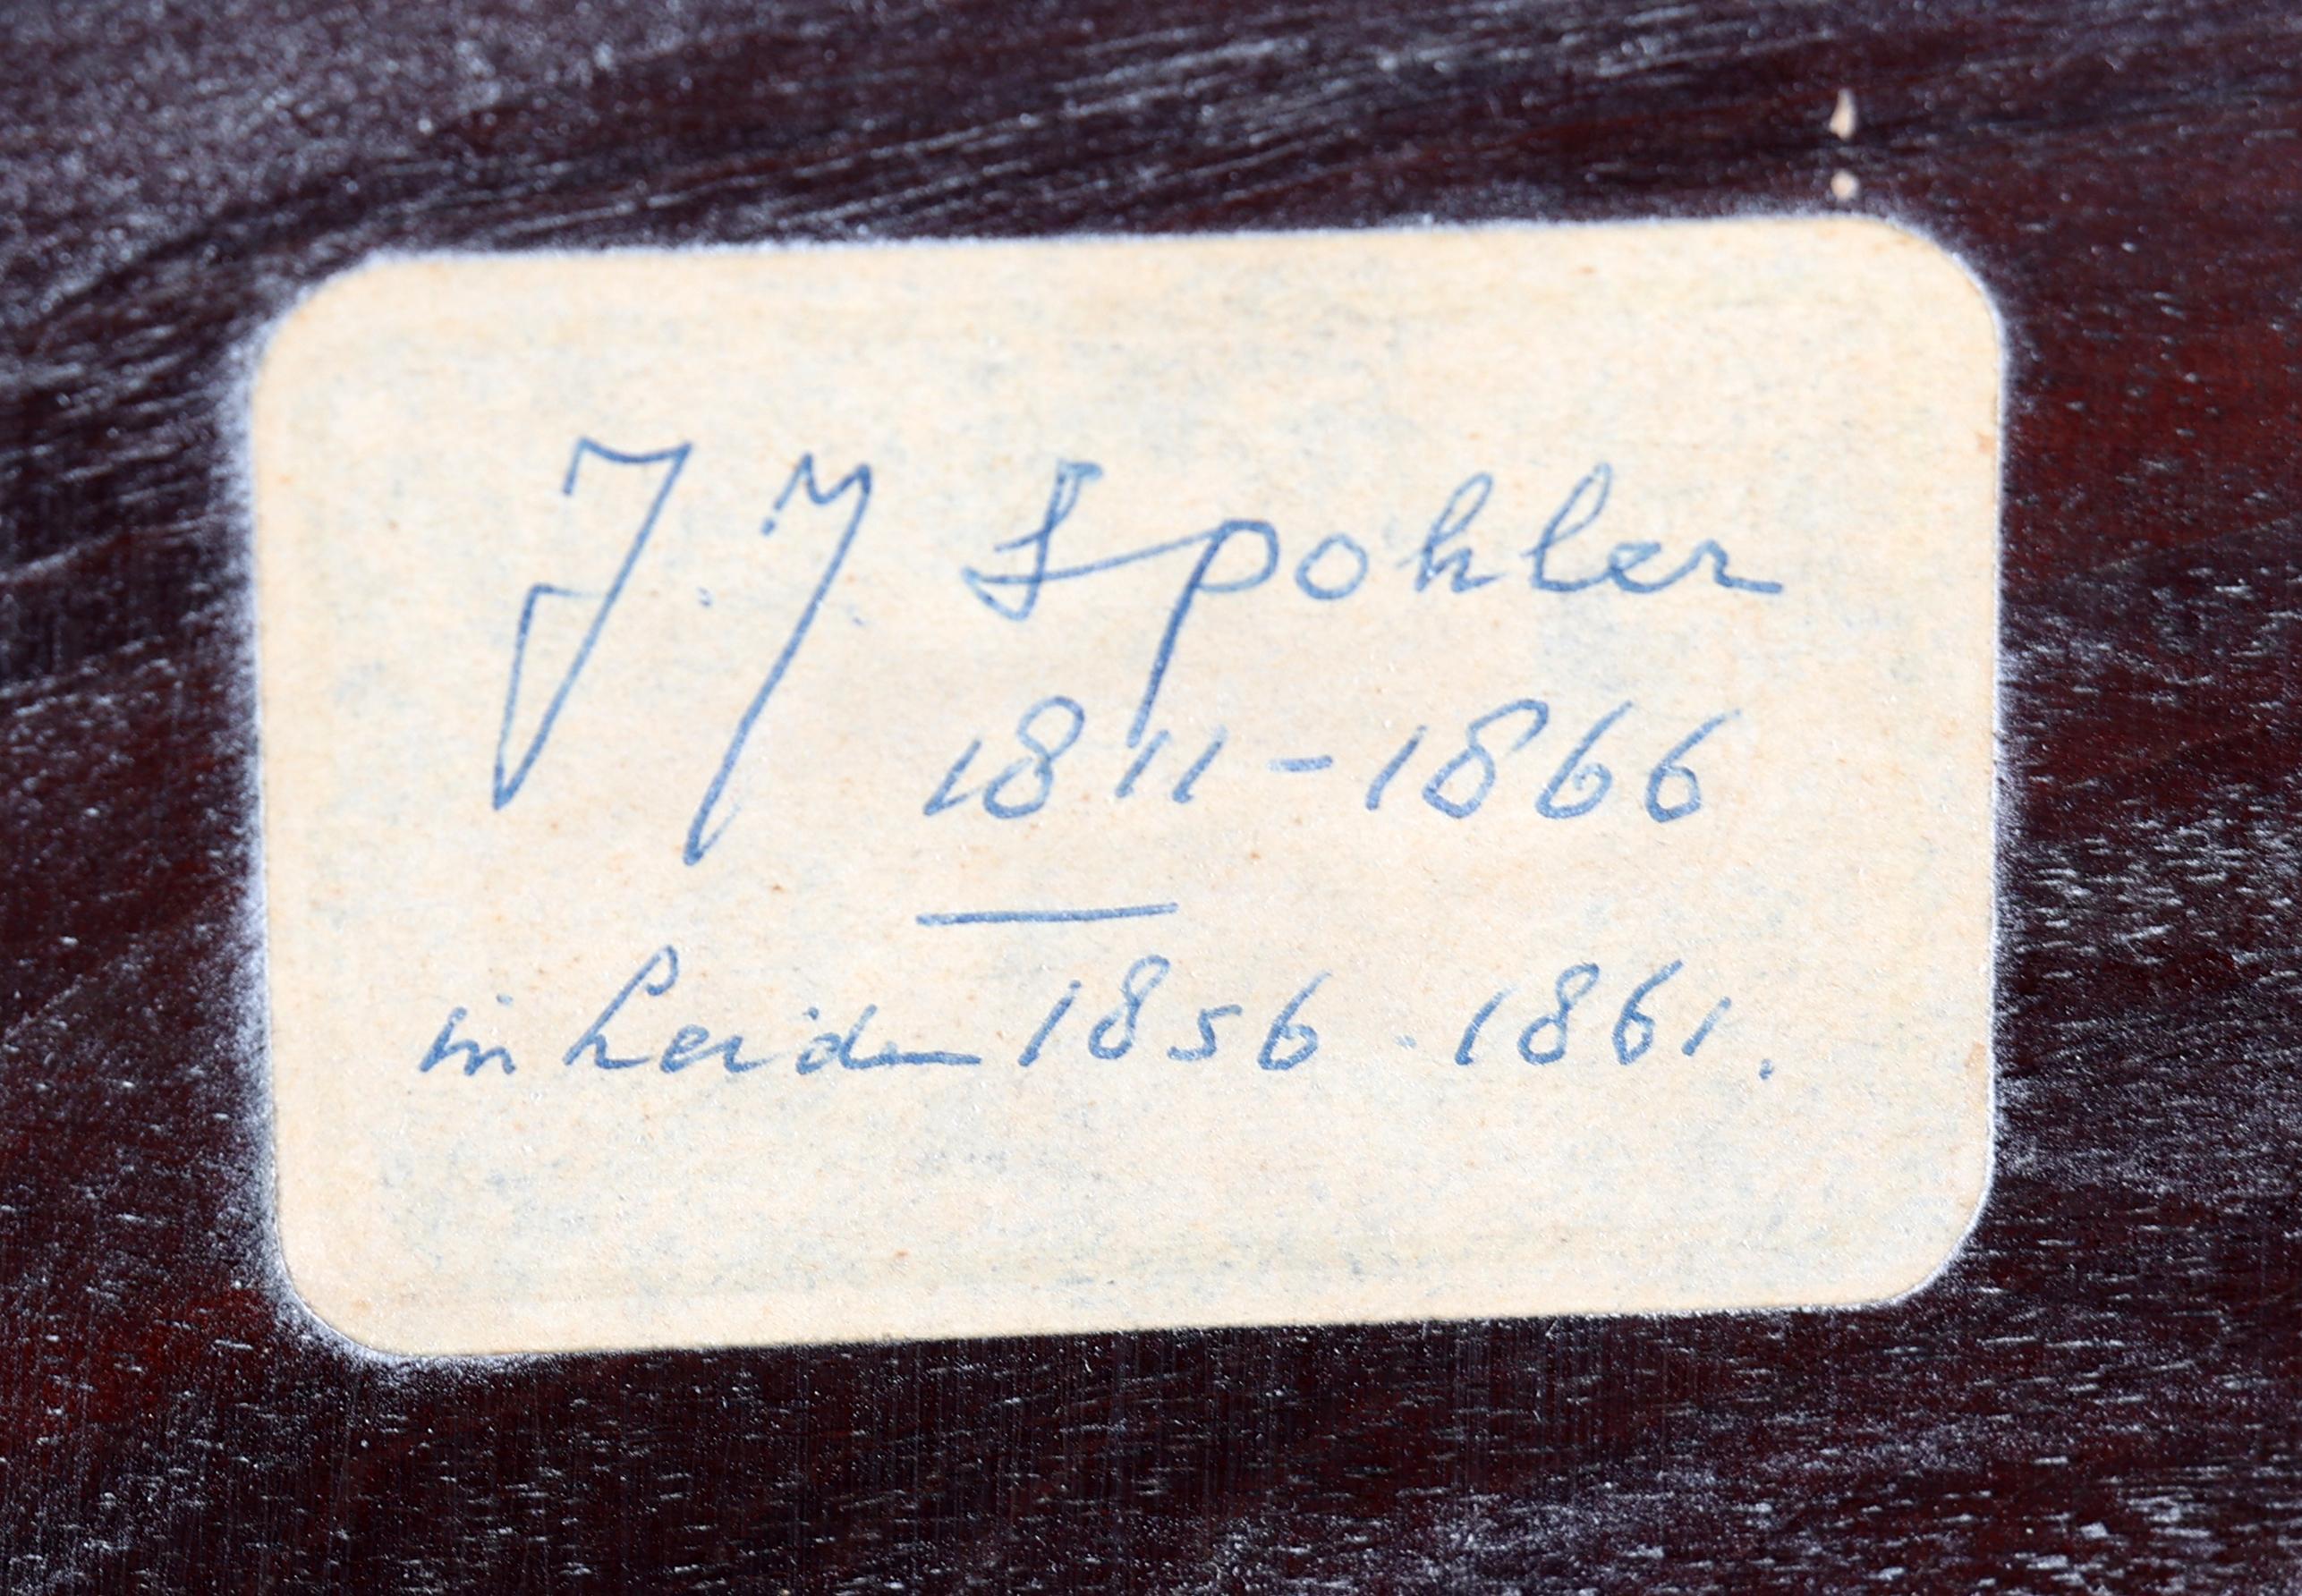 J. J Spohler
1811-1866
in Leiden 1856 - 1861.